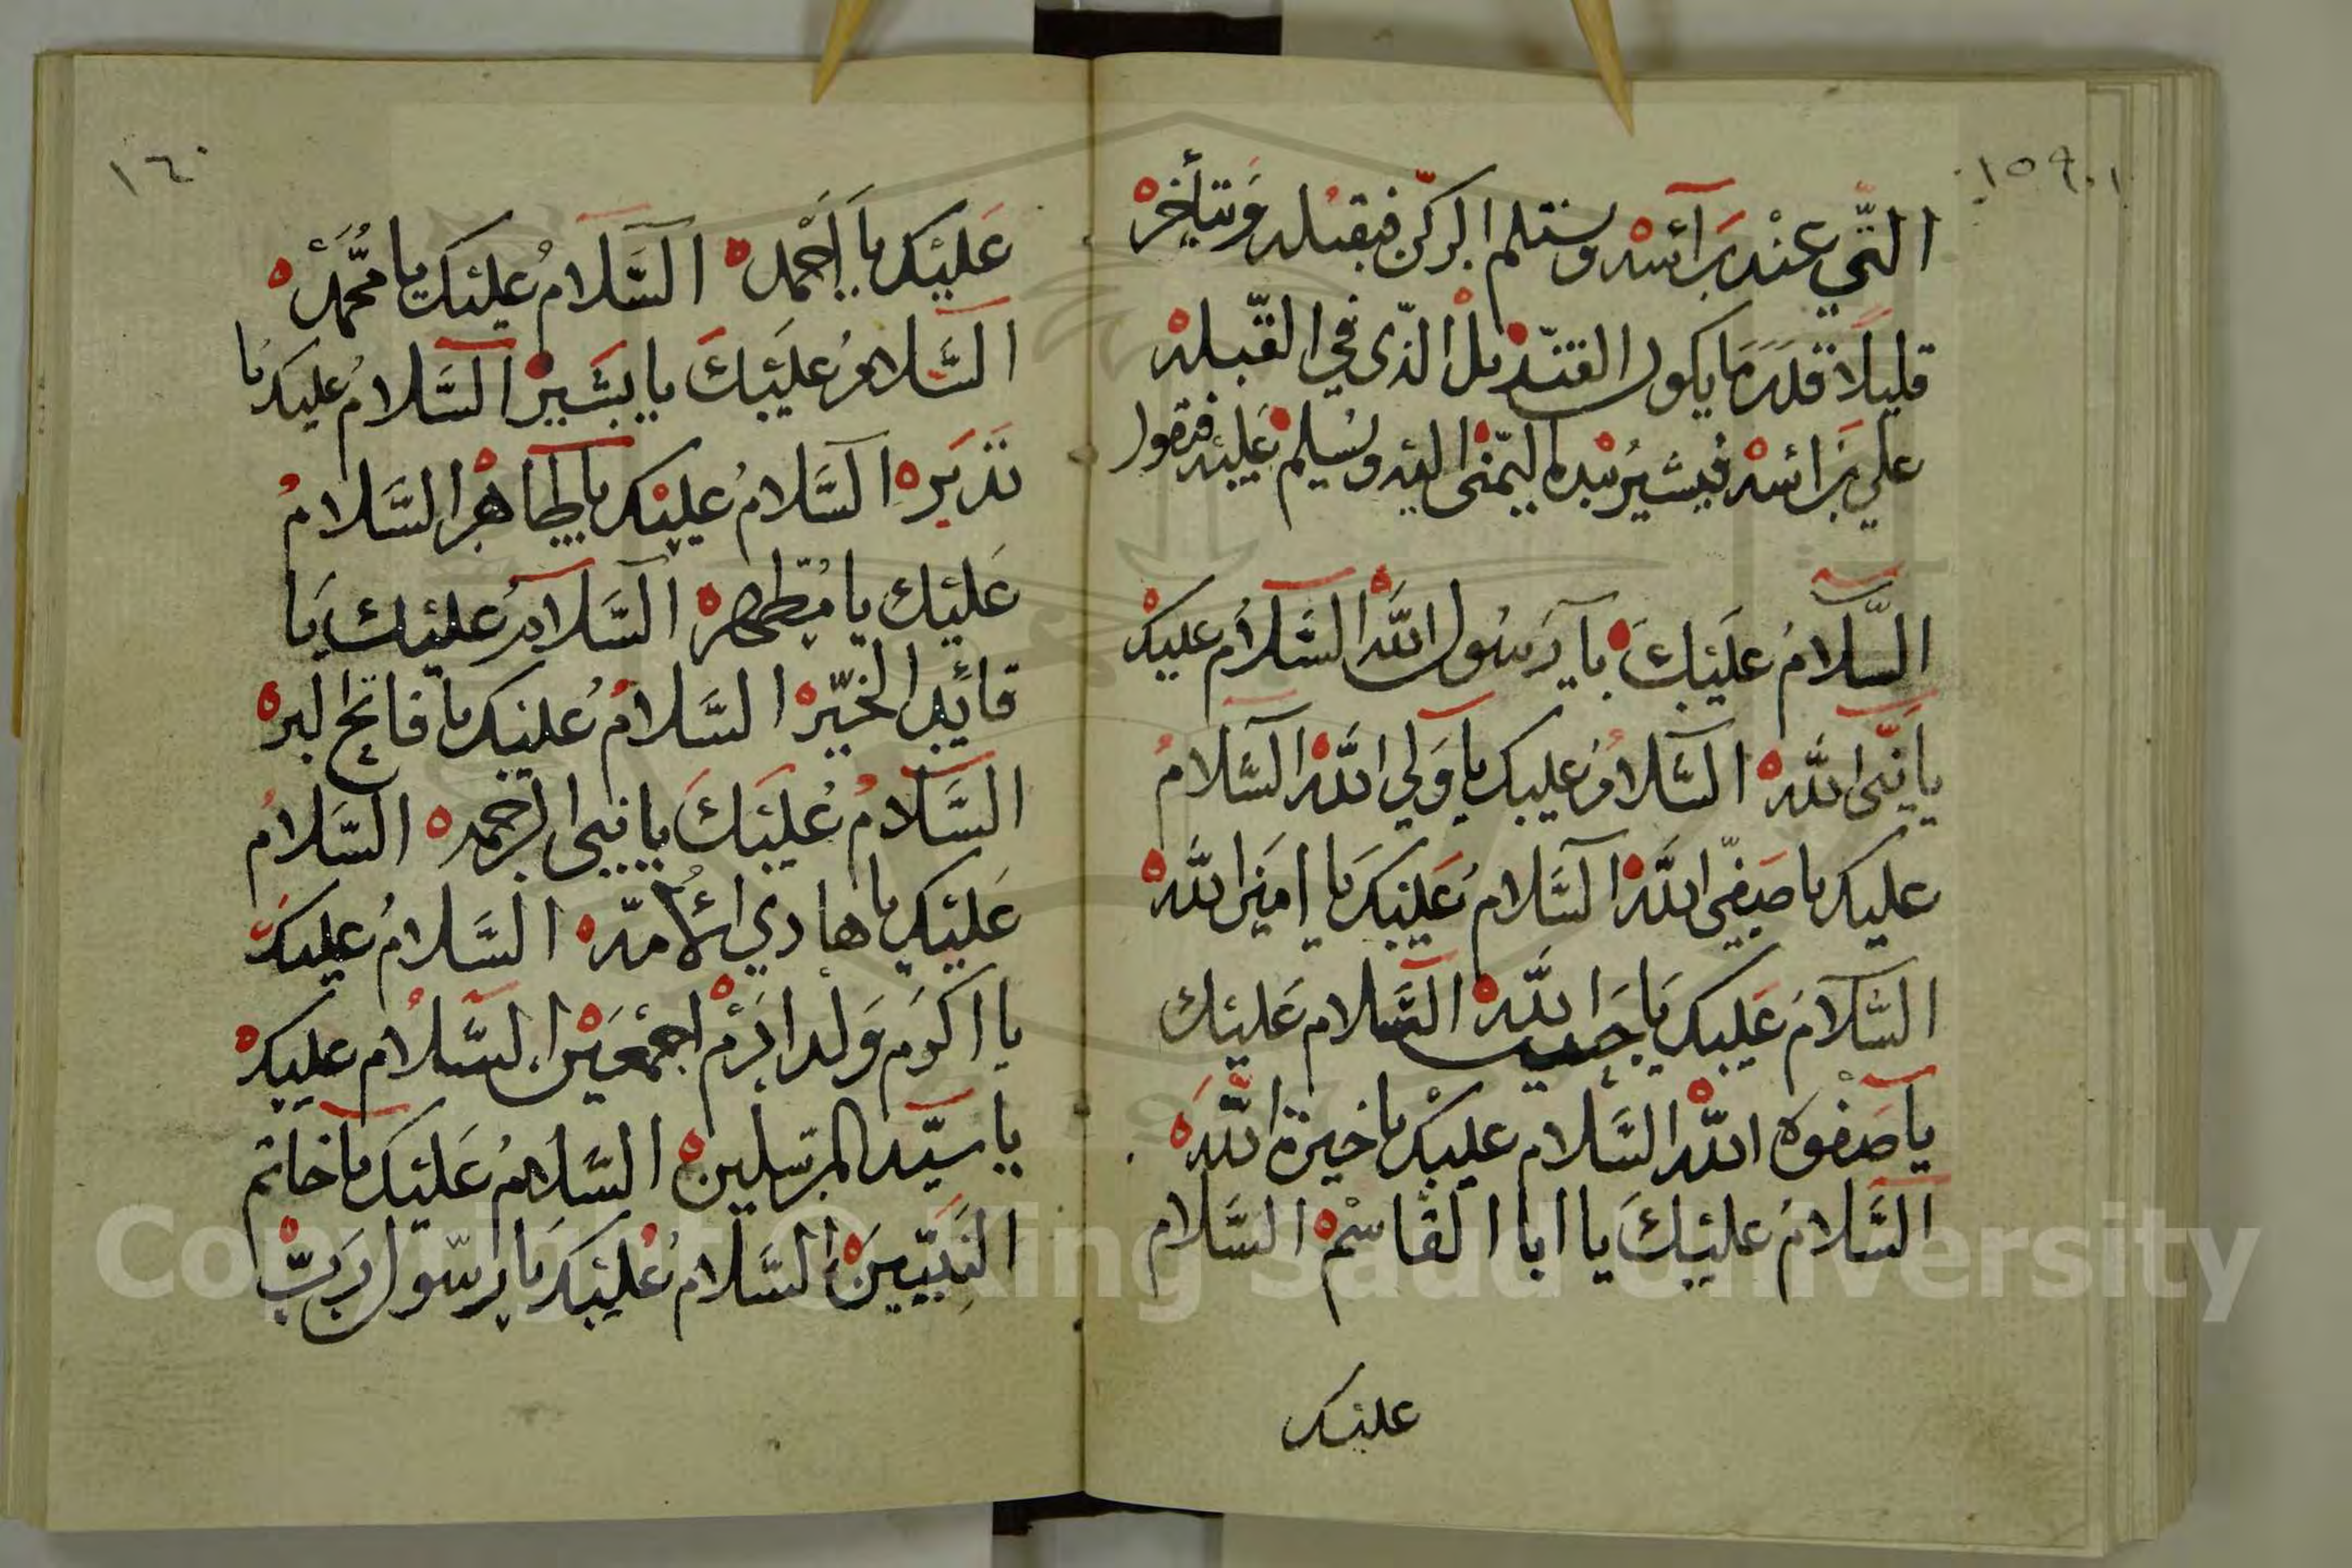 ١٥٩
التي عند رأسه ويستلم الركن فيقبله ويتأخر
قليلا قدر ما يكون القنديل الذي في القبلة
على رأسه فيشير بيده اليمنى اليه ويسلم عليه فيقول
السَّلامُ عَلَيْكَ يا رَسُول الله السَّلامُ عليك
يا نبي الله السَّلامُ عليك يا وَلي الله السَّلامُ
عليك يا صفي الله السَّلامُ عليك يا امين الله
السَّلامُ عليك يا حبيب الله السلام عليك
يا صفوة الله السَّلام عليك يا خيرة الله
السَّلامُ عليك يا ابا القاسم السَّلام
عليك
١٦٠
عليك يا أحمد السَّلامُ عليك يا محمد
السَّلامُ عليك يا بشير السَّلامُ عليك يا
نذير السَّلامُ عليك يا طاهر السَّلامُ
عليك يا مطهر السَّلامُ عليك يا
قائد الخير السَّلامُ عليك يا فاتح البر
السَّلامُ عليك يا نبي الرحمه السَّلامُ
عليك يا هادي الأمّه السَّلامُ عليك
يا اكرم ولد ادم اجمعين السَّلامُ عليك
يا سيّد المرسلين السَّلامُ عليك يا خاتم
النبيّين السَّلامُ عليك يا رسول ربّ
Copyright © King Saud University